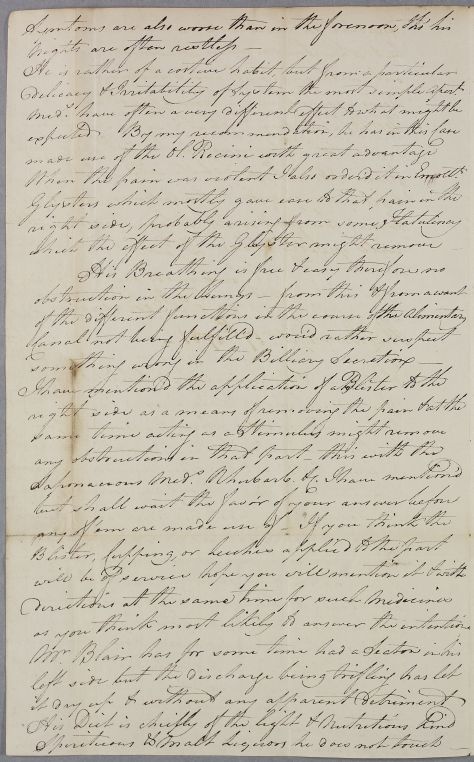 Symtoms are also worse than in the forenoon, this his
Nights are often restless —
He is rather of a costive habit, but from a particular
Delicacy & Irritability of System the most simple Apert.
Med.s have often a very different effect to what might be
expected. By my recommendation, he has in this case
made use of the Ol. Recini with great advantage
When the pain was violent I also orderd it in Emolt.
Glysters which mostly gave ease to that pain in the
right side, probably arising from some flatulency
which the effect of the Glyster might remove
His Breathing is free & easy therefore no
obstruction in the Lungs — from this & from a want
of the different functions in the course of the Alimentary
Canal not being fulfilled — would rather suspect
something wrong in the Billiary Secretion —
I have mention'd the application of a Blister to the
right side as a means of removing the pain & at the
same time acting as a Stimulus might remove
any obstructions in that part, this with the
Saponaceous Med.s Rhubarb &c. I have mention'd
but shall wait the favor of your answer before
any of em are made use of If you think the
Blister, Cupping, or Leeches applied to the part
will be of service hope you will mention it & with
directions at the same time for such Medicine
as you think most likely to answer the intention
Mr. Blair has for some time had a Seton in his
left side but the discharge being trifling has let
it dry up & without any apparent Detriment
His Diet is chiefly of the light & Nutritious kind
Spirituous & Malt Liquors he does not touch —